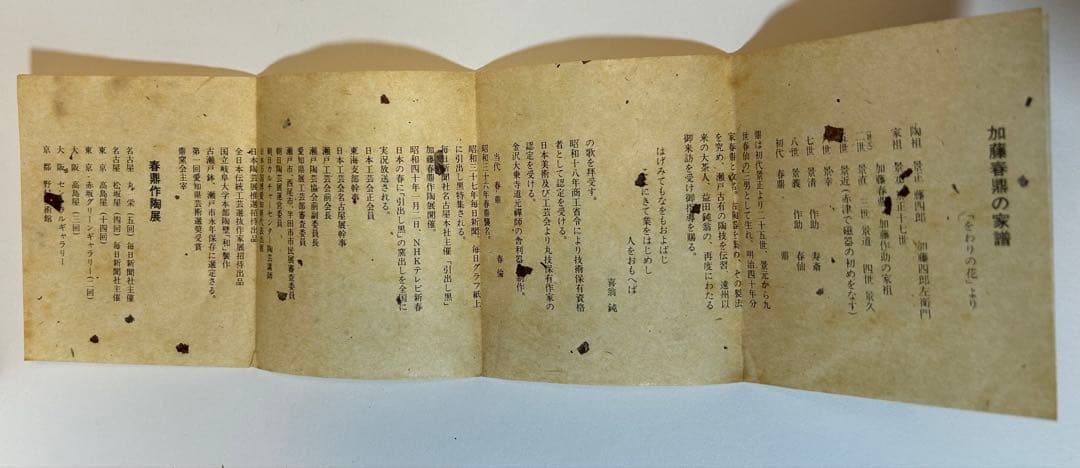 加藤春鼎の家譜
「をわりの花」より
陶祖 景正 藤四郎 加藤四郎左衛門
家祖 景 正十七世
加藤春 加藤作助の家祖
二世 景直 三世 景道 四世 景久
世 景近(赤津で磁器の初めをなす)
世 景幸 寿斎
七世 景清 作助 春仙
八世 景義 作助
初代 春鼎
鼎は初代景正より二十五世、景元から九
世春仙の二男として生れ、明治四十年分
家春鼎と改名。古陶器を集め、その製法
を究め、瀬戸古有の陶技を伝習、遠州以
来の大茶人、益田鈍翁の、再度にわたる
御来訪を受け御指導を賜る。
はげみてもなをもおよばじ
こ にきて業をはじめし
人をおもへば
喜翁 鈍
の歌を拝受す。
昭和十八年商工省令により技術保有資格
者として認定を受ける。
日本美術及び工芸会より丸技保有作家の
認定を受ける。
金沢大乗寺道元禅師の舎利器 制作。
当代 春鼎 春倫
昭和三十六年春鼎襲名。
昭和三十七年毎日新聞、毎日グラフ紙上
に引出し黒特集される。
毎日 社名古屋本社主催「引出し黒」
加藤春鼎作陶展開催。
昭和四十年一月二日、NHKテレビ新春
日本の春に「引出し黒」の窯出しを全国に
実況放送される。
日本工芸会正会員
東海支部幹事
日本工芸会名古屋展幹事
日本工芸会前会長
瀬戸陶芸協会前副委員長
愛知県展工芸部審査委員
瀬戸市、西尾市、半田市市民展審査委員
朝日陶芸展運営委員
朝日カルチャーセンター陶芸講師
日本陶芸展推選招待出品
全日本伝統工芸選抜作家展招待出品
国立岐阜大学本部陶壁「和」製作
古瀬戸鉢、瀬戸市永年保存に選定さる。
第一回愛知県芸術選奨受賞
鼎窯会主宰
春鼎作陶展
名古屋 丸栄(五回)毎日新聞社主催
名古屋 松坂屋(四回)毎日新聞社主催
東京 高島屋(十四回)
東京・赤坂グリーンギャラリー(一回)
大阪 高島屋(三回)
大阪 セ ルギャラリー
京都 野 術館